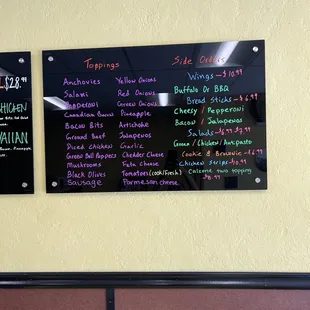 $28.99
CHICKEN
Toppings
Anchovies
Salami
Pepperoni
Canadian Bacon
Bacon Bits
Ground Beef
Diced Chicken
Green Bell Peppers
Mushrooms
Black Olives
Sausage
Yellow Onions
Red Onions
Green Onions
Pineapple
Artichoke
Jalapenos
Garlic
Cheddar Cheese
Feta Cheese
Tomatoes (cook/fresh)
Parmesan cheese
Side Orders
Wings - $10.99
Buffalo Or BBQ
Bread Sticks - 6.99
Cheesy / Pepperoni
Bacon / Jalapenos
Salads - $6.99 $7.99
Green / Chicken / Antipasto
Cookie & Brownie - $6.99
Chicken Strips - $10.99
Calzone two topping